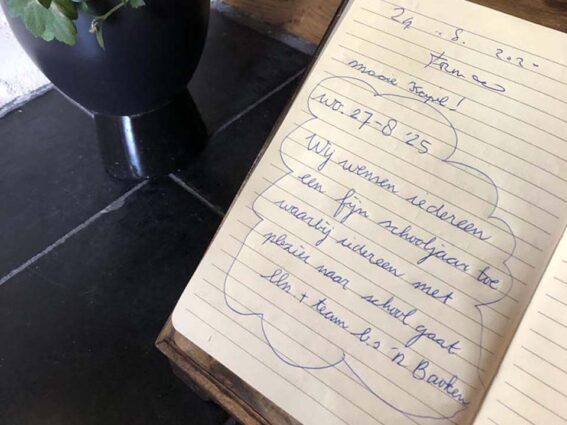 24 . 8. 202
mooie Kapel!
wo. 27-8 '25
Wij wensen iedereen
een fijn schooljaar toe
waarbij iedereen met
plezier naar school gaat
lln + team b.s 'n Bavken